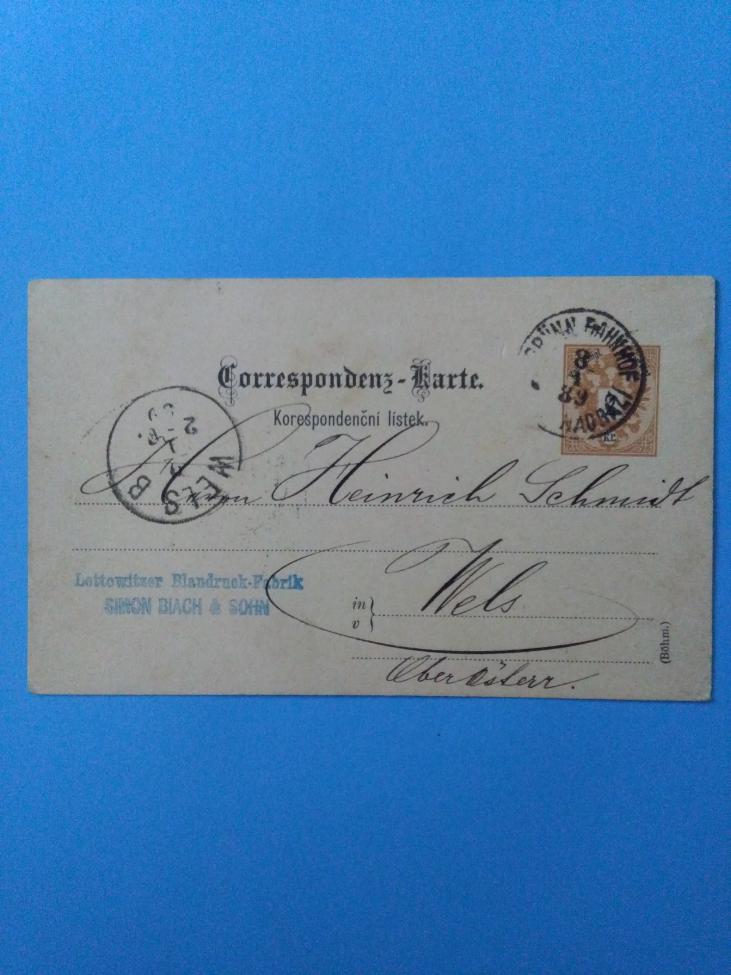 Correspondenz-Karte.
Korespondenční lístek.
BRÜNN BAHNHOF
8
1
89
NADRAŽI
KR.
WELS
Herrn Heinrich Schmidt
Lettowitzer Blaudruck-Fabrik
SIMON BIACH & SOHN
in
v
Wels
Oberösterr.
(Böhm.)